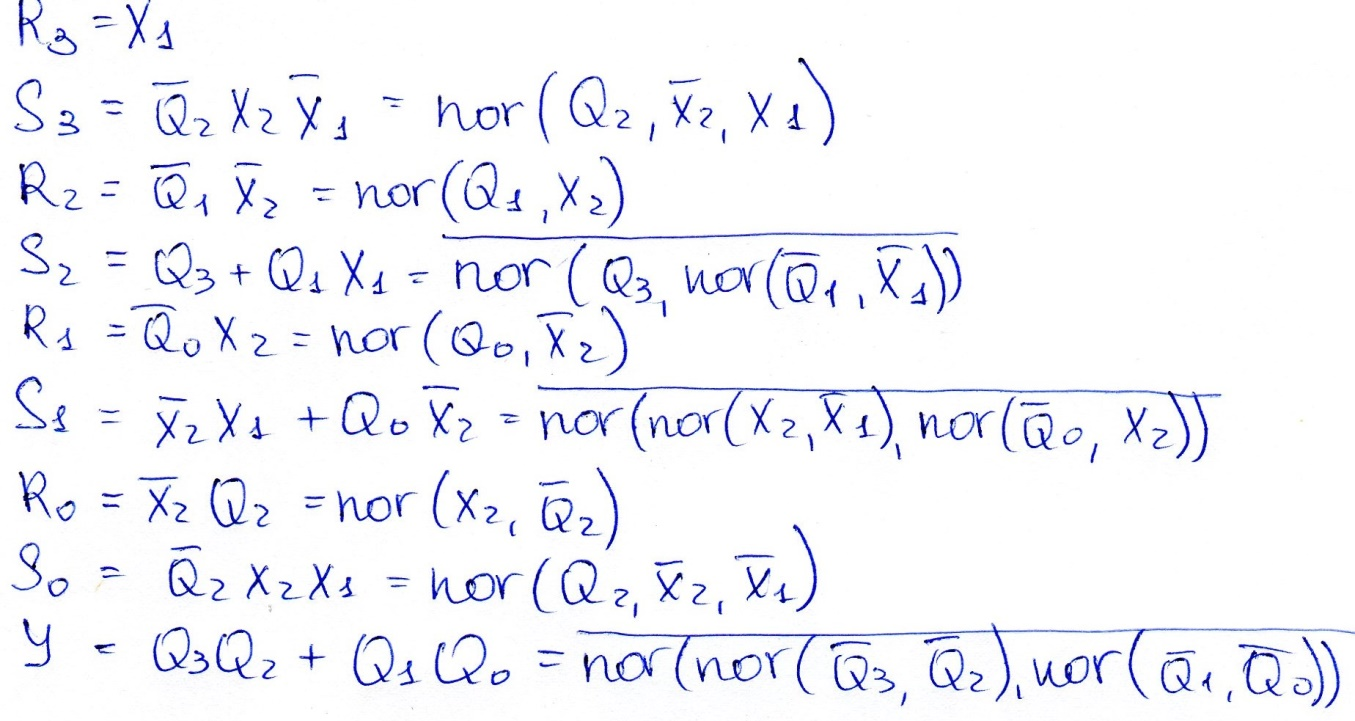 R₃ = X₁
S₃ = Q̅₂ X₂ X̅₁ = nor(Q₂, X̅₂, X₁)
R₂ = Q̅₁ X̅₂ = nor(Q₁, X₂)
S₂ = Q₃ + Q₁ X₁ = \overline{nor(Q₃, nor(Q̅₁, X̅₁))}
R₁ = Q̅₀ X₂ = nor(Q₀, X̅₂)
S₁ = X̅₂ X₁ + Q₀ X̅₂ = \overline{nor(nor(X₂, X̅₁), nor(Q̅₀, X₂))}
R₀ = X̅₂ Q₂ = nor(X₂, Q̅₂)
S₀ = Q̅₂ X₂ X₁ = nor(Q₂, X̅₂, X̅₁)
y = Q₃Q₂ + Q₁Q₀ = \overline{nor(nor(Q̅₃, Q̅₂), nor(Q̅₁, Q̅₀))}